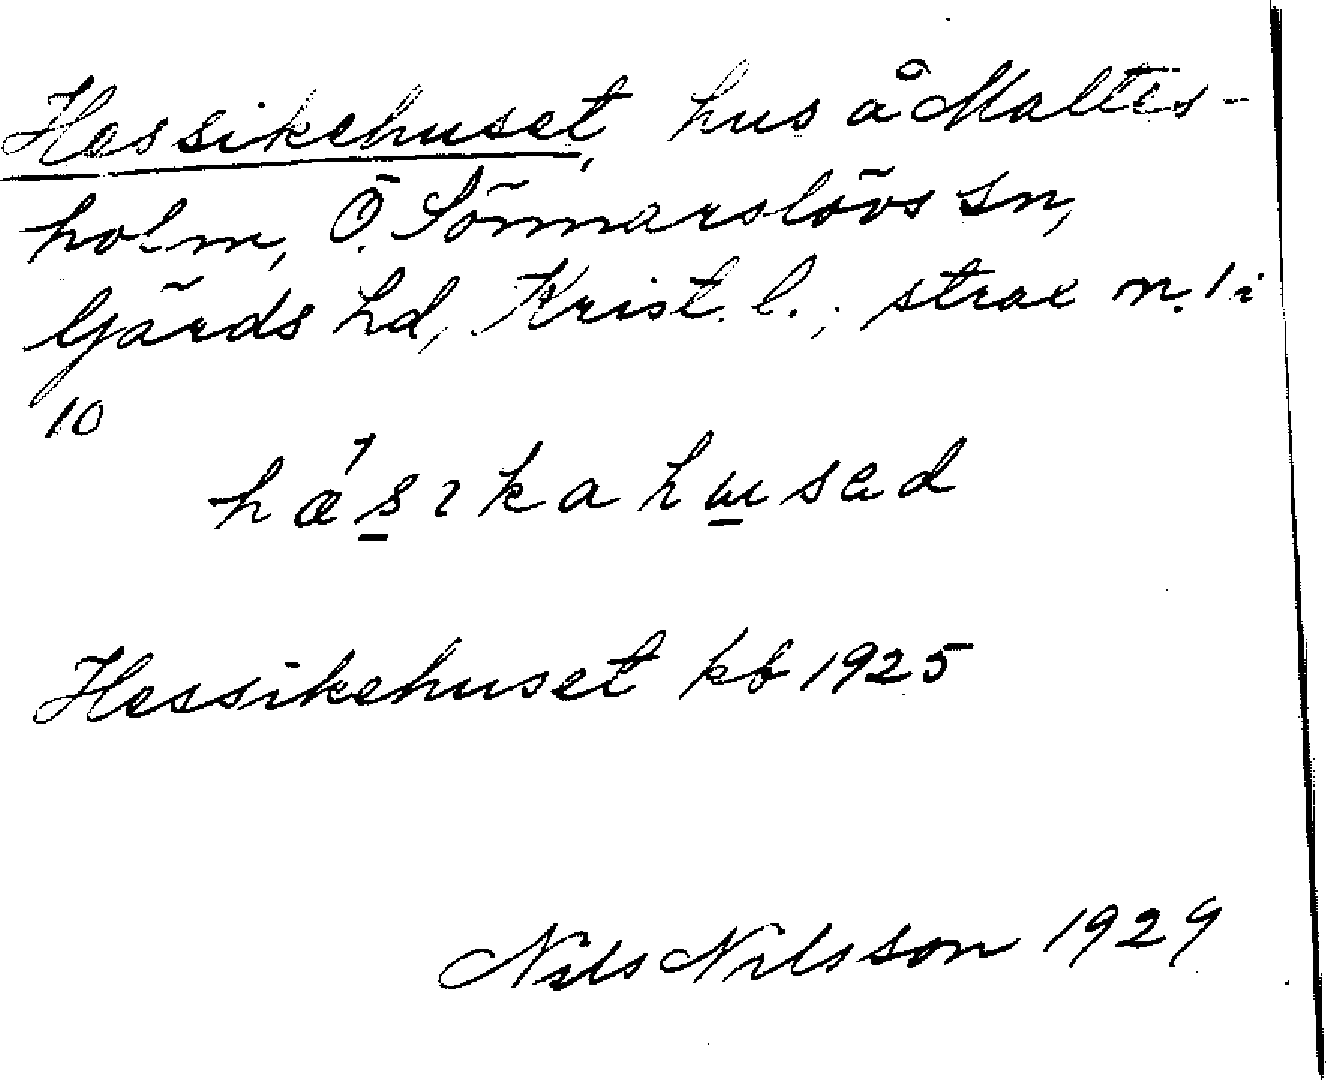 Hessikehuset, hus å Maltes-
holm, Ö. Sönnarslövs sn,
Gärds hd, Krist. l.; strax n. 1 i
10
hæ´sıkahusad
Hessikehuset kb 1925
Nils Nilsson 1929